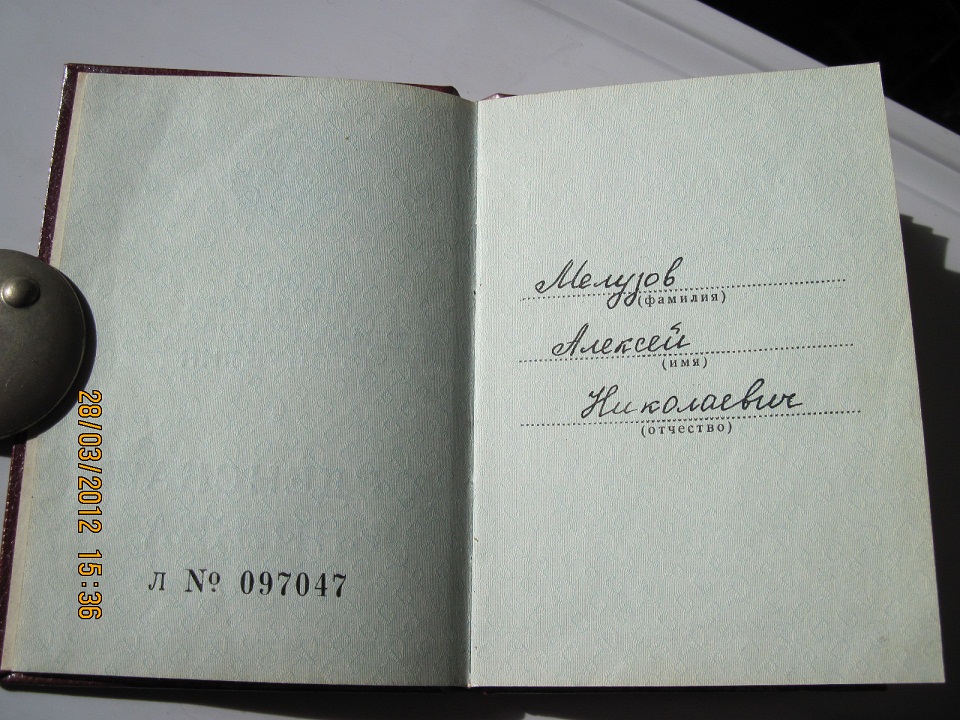 Л № 097047
Мелузов
(фамилия)
Алексей
(имя)
Николаевич
(отчество)
28/03/2012 15:36